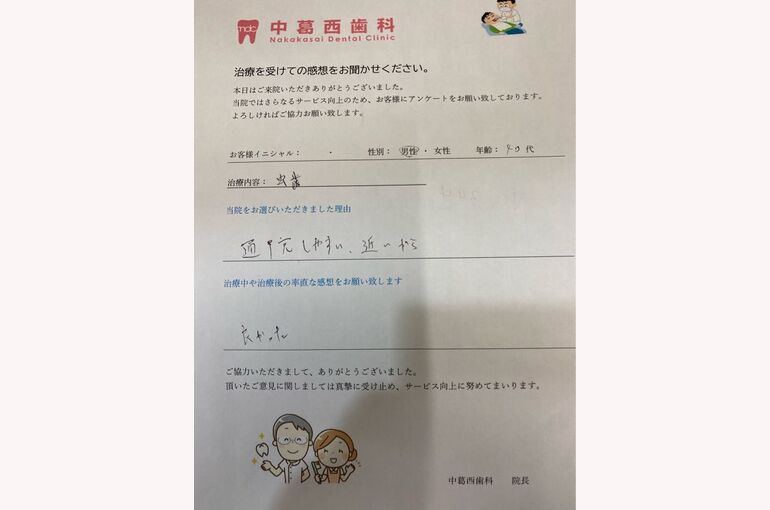 ndc
中葛西歯科
Nakakasai Dental Clinic
治療を受けての感想をお聞かせください。
本日はご来院いただきありがとうございました。
当院ではさらなるサービス向上のため、お客様にアンケートをお願い致しております。
よろしければご協力お願い致します。
お客様イニシャル： ・ 性別：男性・女性 年齢：40代
治療内容：虫歯
当院をお選びいただきました理由
通院しやすい、近いから
治療中や治療後の率直な感想をお願い致します
良かった
ご協力いただきまして、ありがとうございました。
頂いたご意見に関しましては真摯に受け止め、サービス向上に努めてまいります。
中葛西歯科 院長